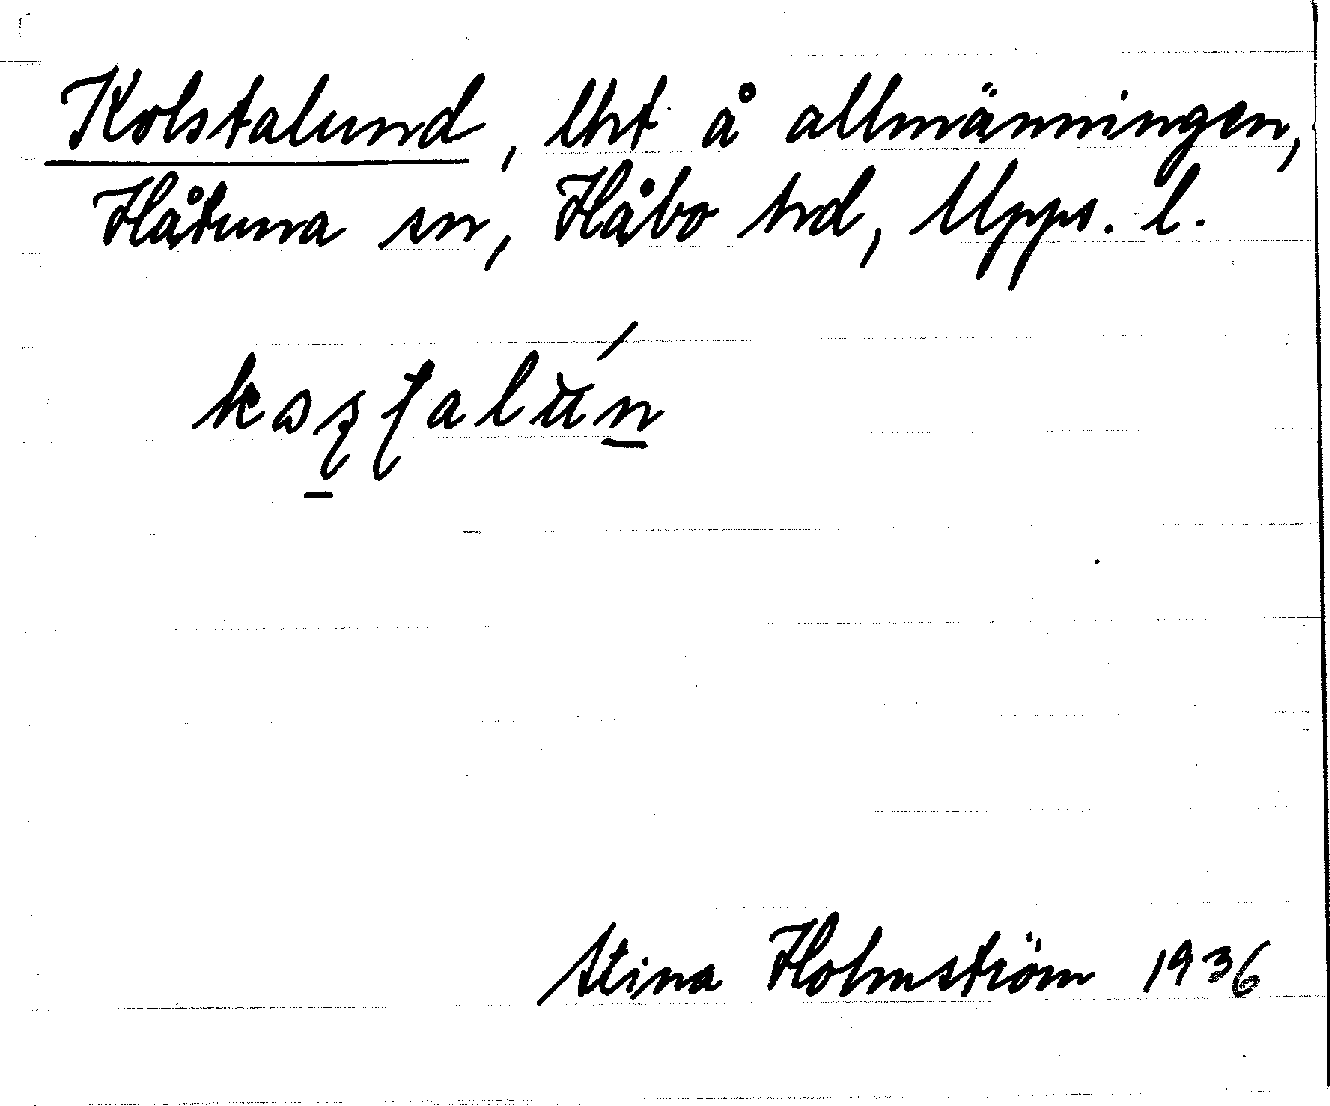 Kolstalund, lht å allmänningen,
Håtuna sn, Håbo hd, Upps. l.
Stina Holmström 1936